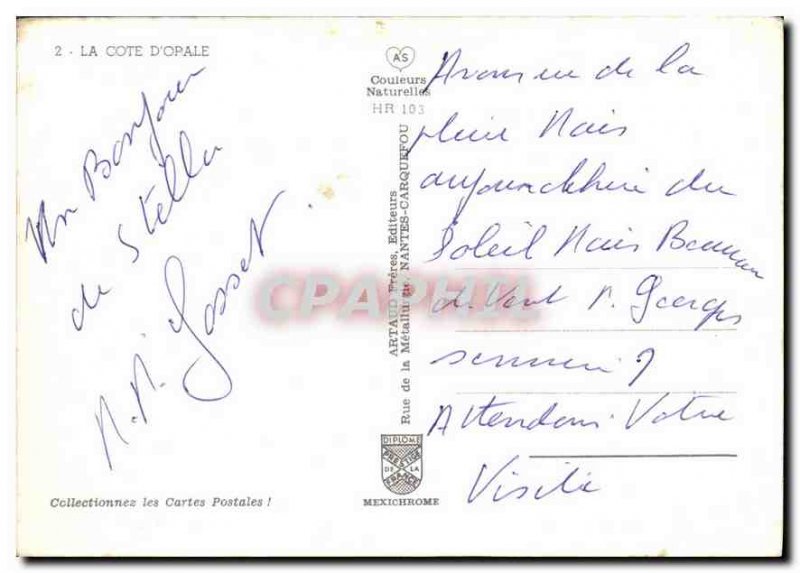 2 - LA COTE D'OPALE
Un Bonjour
de Stella
M. M. Gosset.
Collectionnez les Cartes Postales !
AS
Couleurs
Naturelles
HR 103
ARTAUD Frères, Editeurs
Rue de la Métallurgie, NANTES-CARQUEFOU
DIPLOME
PRESTIGE
DE LA
FRANCE
MEXICHROME
CPAPHIL
de la
pluie Mais
aujourd'hui du
Soleil Mais Beaucou
de Vent M. Georges
Attendons Votre
Visite